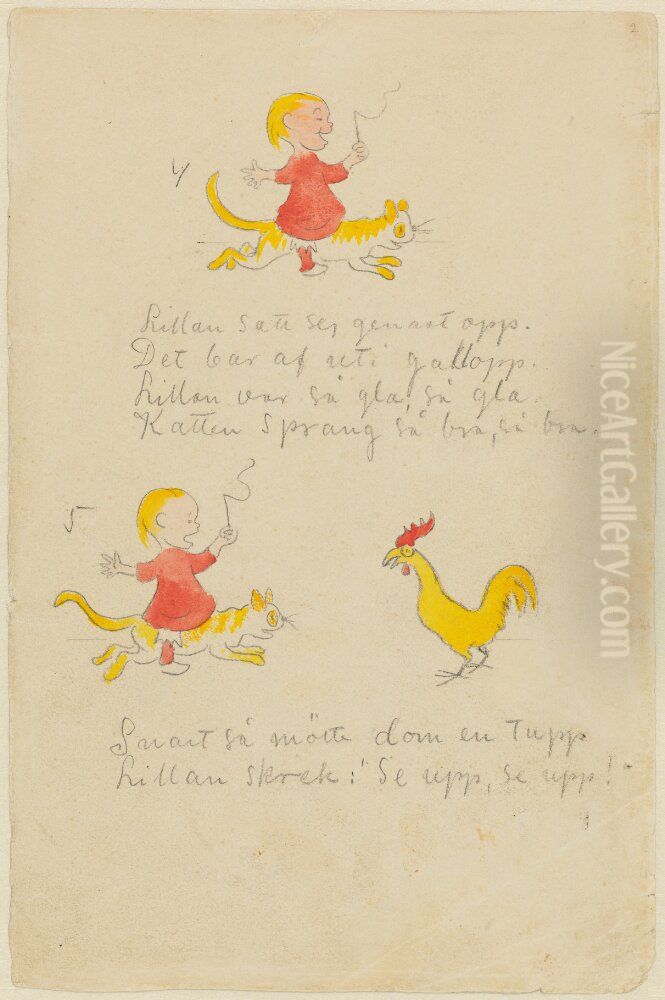 2
4
Lillan satt sej genast opp.
Det bar af uti gallopp.
Lillan var så gla, så gla.
Katten sprang så bra, så bra.
5
Snart så mötte dom en Tupp
Lillan skrek: "Se upp, se upp!"
NiceArtGallery.com